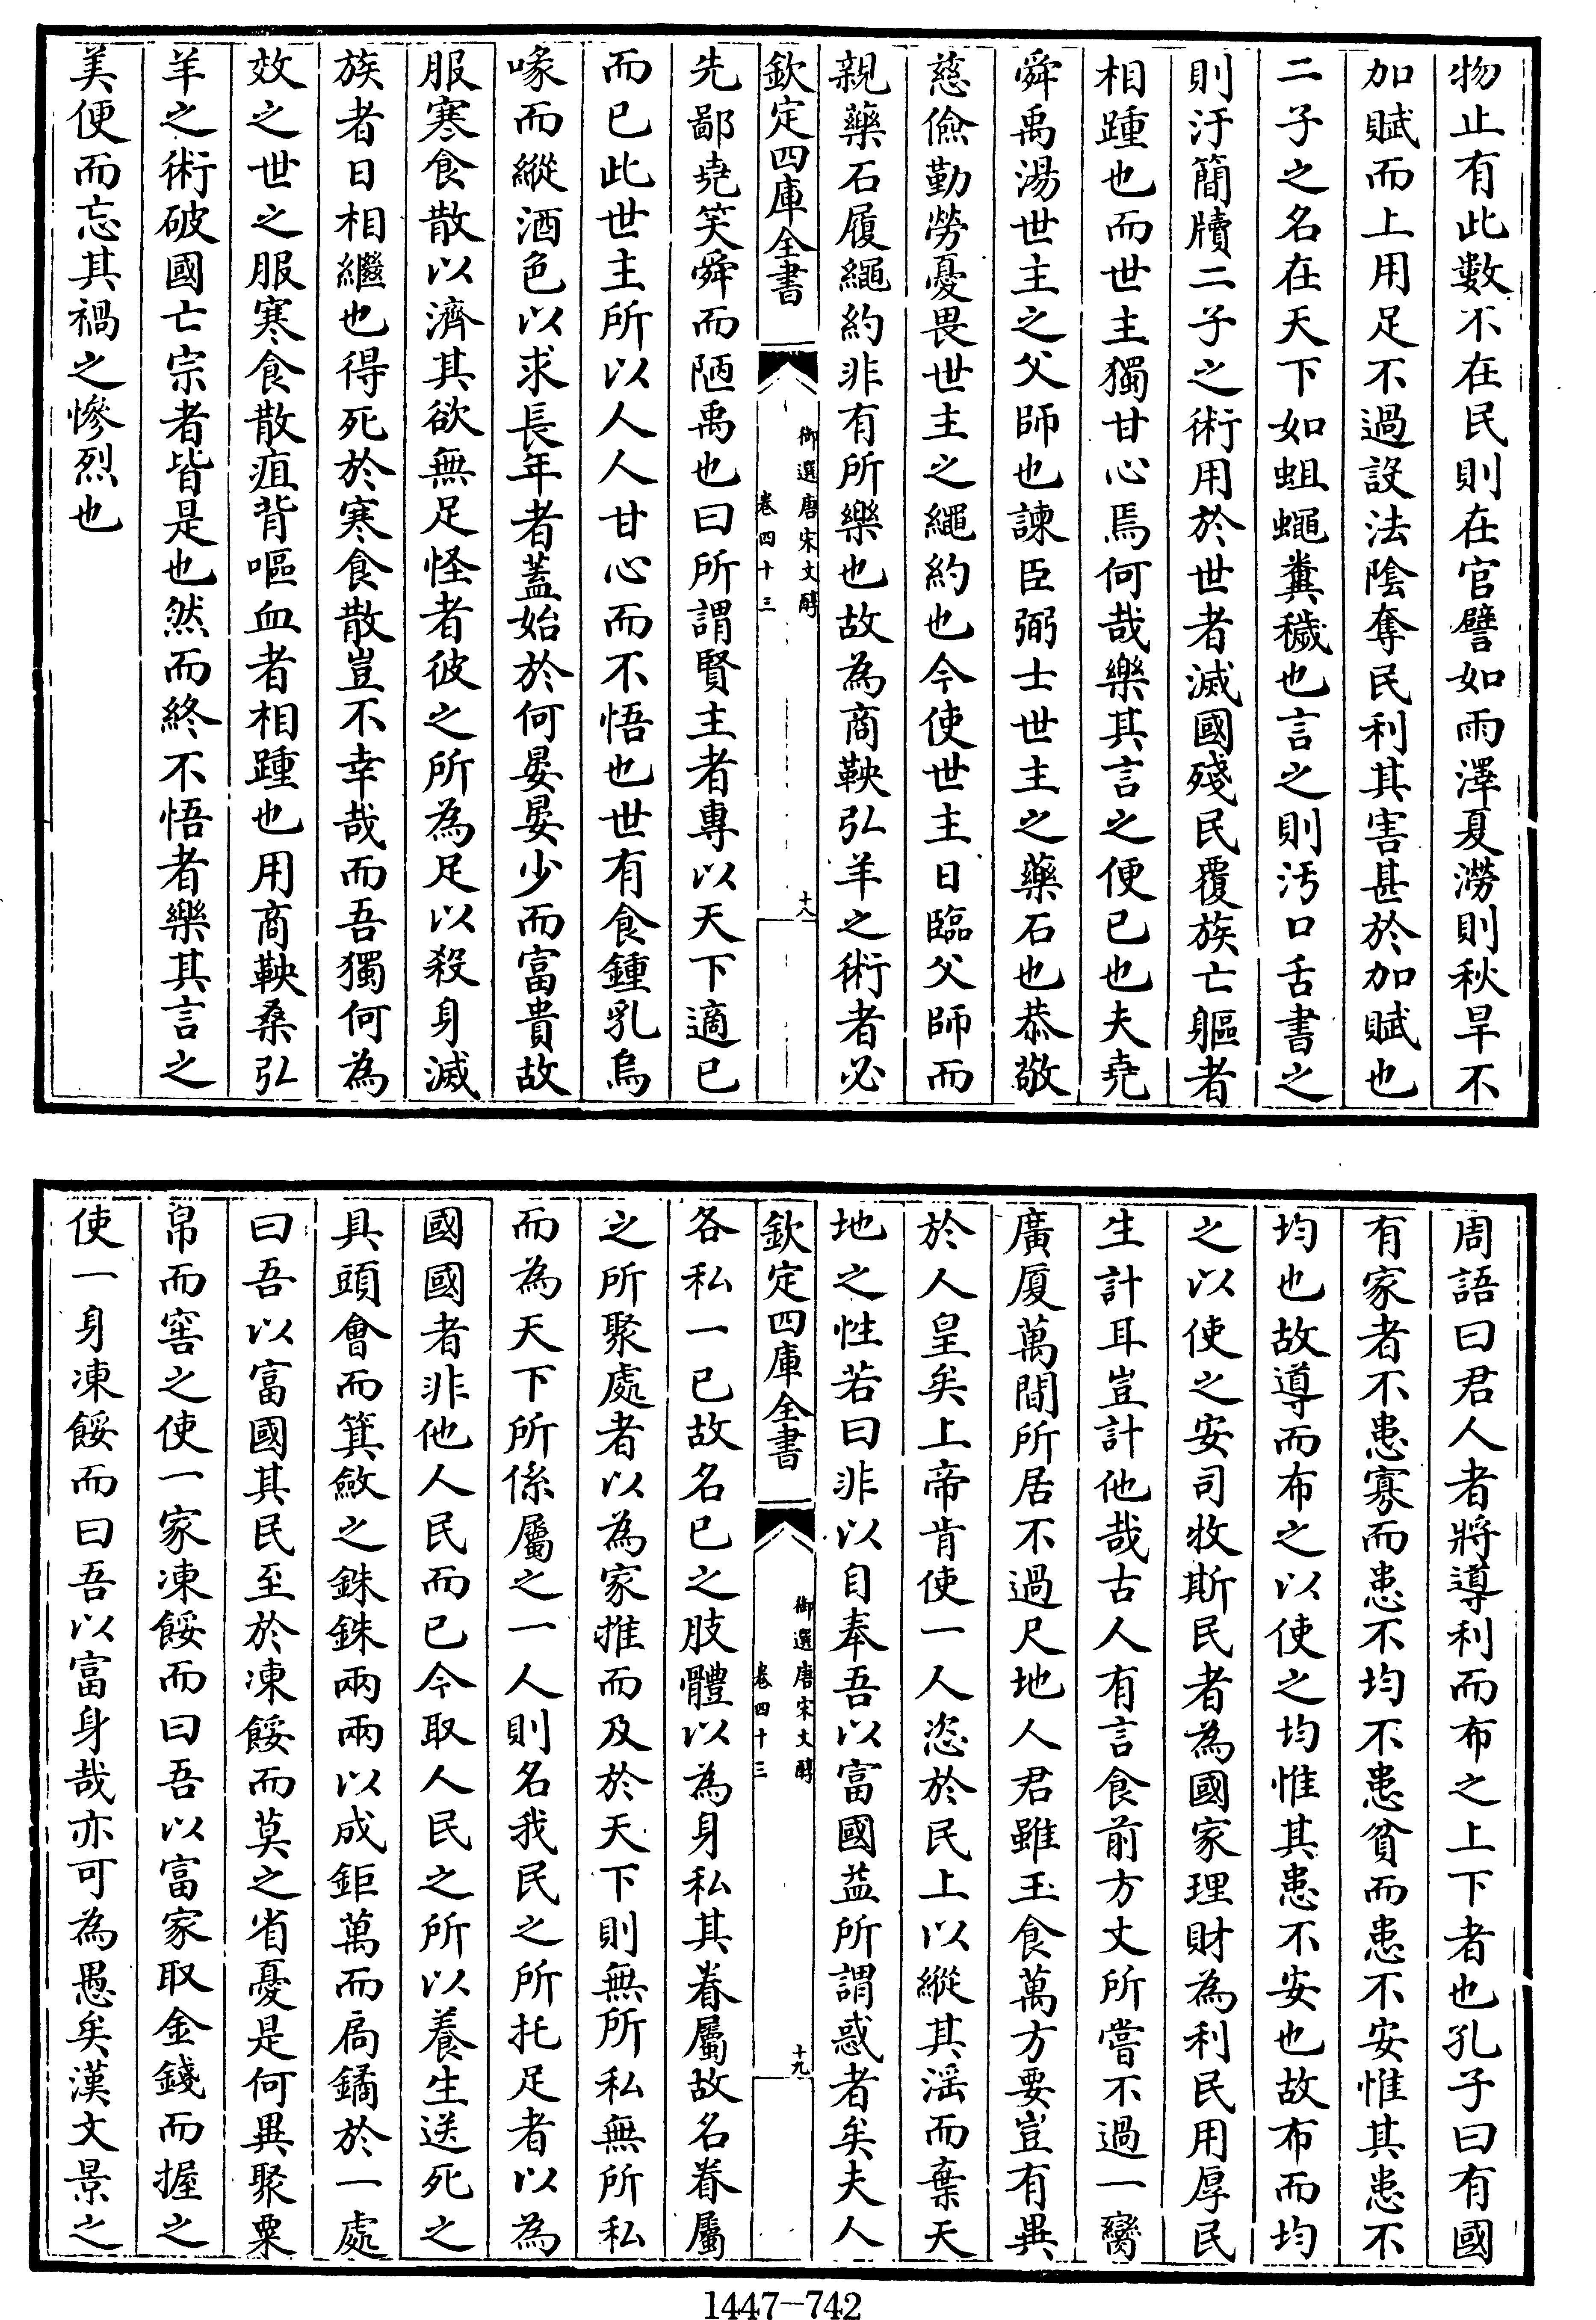 物止有此數不在民則在官譬如雨澤夏澇則秋旱不
加賦而上用足不過設法陰奪民利其害甚於加賦也
二子之名在天下如蛆蠅糞穢也言之則汚口舌書之
則汙簡牘二子之術用於世者滅國殘民覆族亡軀者
相踵也而世主獨甘心焉何哉樂其言之便已也夫堯
舜禹湯世主之父師也諫臣弼士世主之藥石也恭敬
慈儉勤勞憂畏世主之繩約也今使世主日臨父師而
親藥石履繩約非有所樂也故為商鞅弘羊之術者必
欽定四庫全書
御選唐宋文醇
卷四十三
十八
先鄙堯笑舜而陋禹也曰所謂賢主者專以天下適已
而已此世主所以人人甘心而不悟也世有食鍾乳烏
喙而縱酒色以求長年者蓋始於何晏晏少而富貴故
服寒食散以濟其欲無足怪者彼之所為足以殺身滅
族者日相繼也得死於寒食散豈不幸哉而吾獨何為
效之世之服寒食散疽背嘔血者相踵也用商鞅桑弘
羊之術破國亡宗者皆是也然而終不悟者樂其言之
美便而忘其禍之慘烈也
周語曰君人者將導利而布之上下者也孔子曰有國
有家者不患寡而患不均不患貧而患不安惟其患不
均也故導而布之以使之均惟其患不安也故布而均
之以使之安司牧斯民者為國家理財為利民用厚民
生計耳豈計他哉古人有言食前方丈所嘗不過一臠
廣厦萬間所居不過尺地人君雖玉食萬方要豈有異
於人皇矣上帝肯使一人恣於民上以縱其滛而棄天
地之性若曰非以自奉吾以富國益所謂惑者矣夫人
欽定四庫全書
御選唐宋文醇
卷四十三
十九
各私一已故名已之肢體以為身私其眷屬故名眷屬
之所聚處者以為家推而及於天下則無所私無所私
而為天下所係屬之一人則名我民之所托足者以為
國國者非他人民而已今取人民之所以養生送死之
具頭會而箕斂之銖銖兩兩以成鉅萬而扃鐍於一處
曰吾以富國其民至於凍餒而莫之省憂是何異聚粟
帛而窖之使一家凍餒而曰吾以富家取金錢而握之
使一身凍餒而曰吾以富身哉亦可為愚矣漢文景之
1447-742